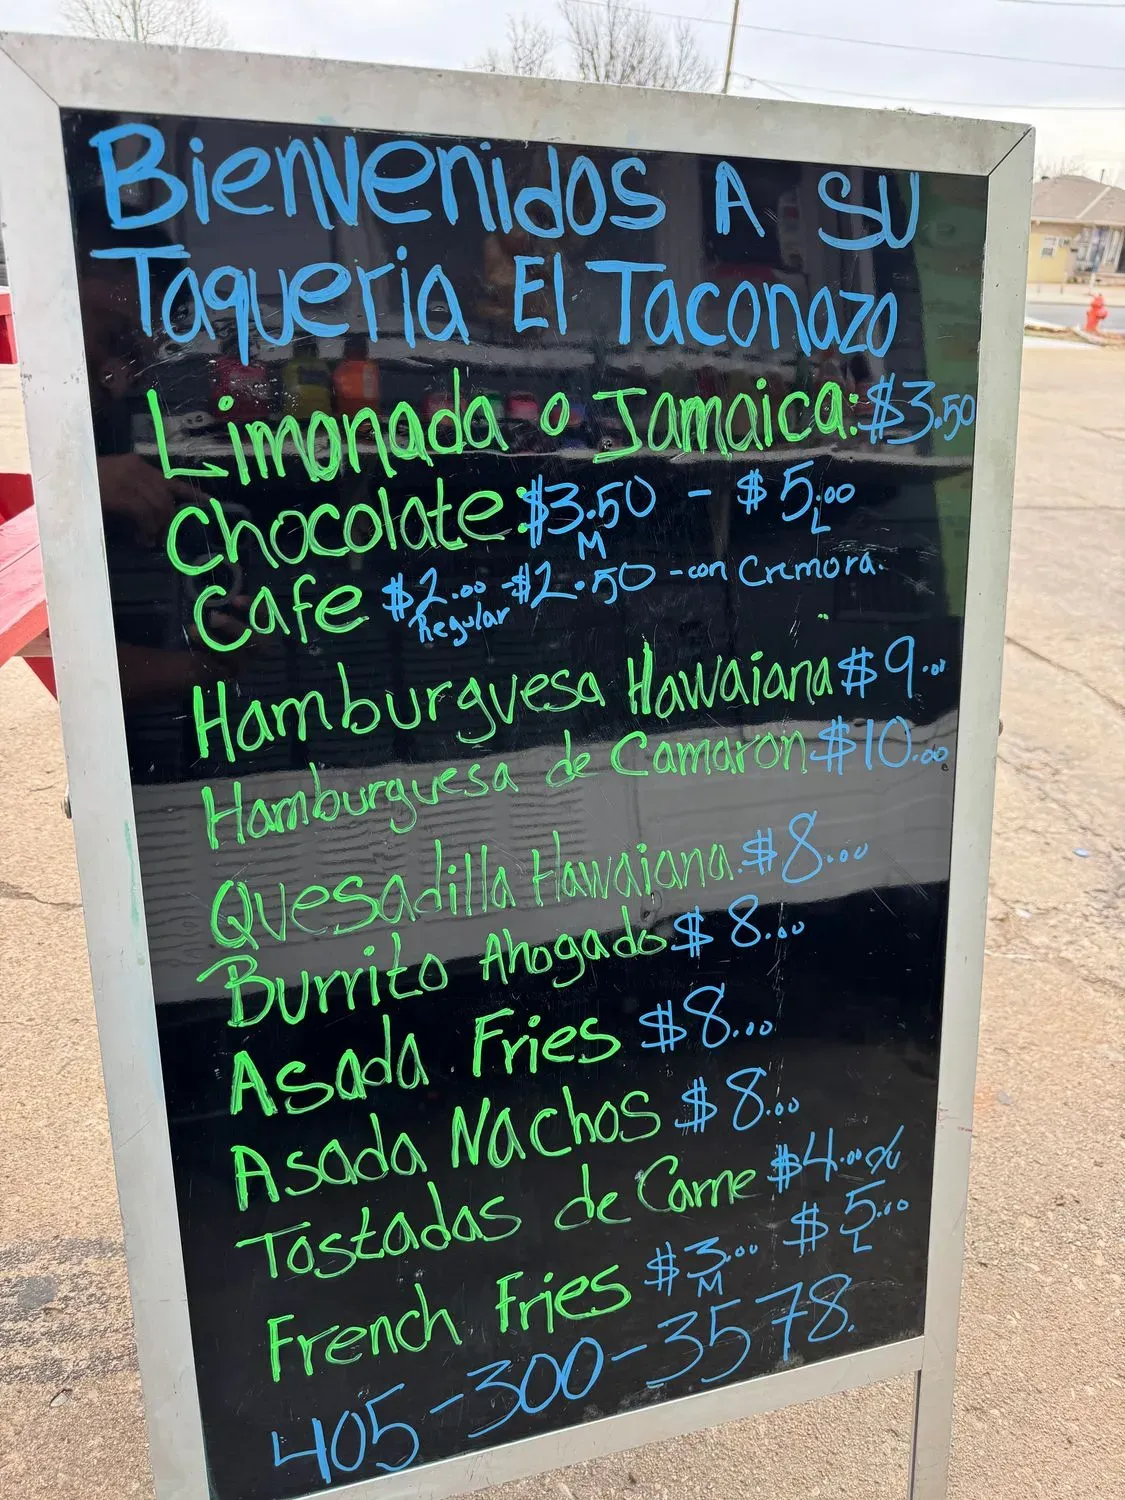 Bienvenidos A SU
Taqueria El Taconazo
Limonada o Jamaica: $3.50
Chocolate: $3.50 - $5.00
M L
Cafe $2.00 - $2.50 - con Cremora.
Regular
Hamburguesa Hawaiana $9.00
Hamburguesa de Camaron $10.00
Quesadilla Hawaiana. $8.00
Burrito Ahogado $8.00
Asada Fries $8.00
Asada Nachos $8.00
Tostadas de Carne $4.00 c/u
French Fries $3.00 $5.00
M L
405-300-3578.